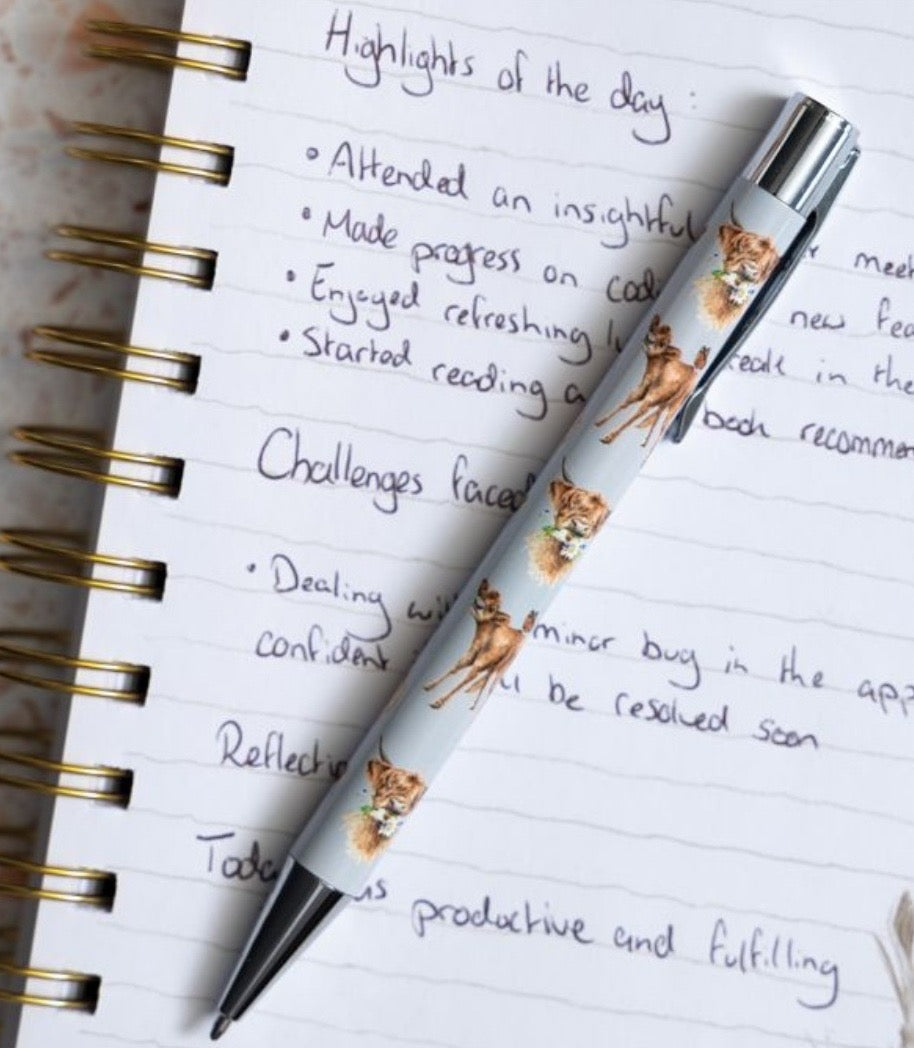 Highlights of the day :
• Attended an insightful meet
• Made progress on codi new fea
• Enjoyed refreshing in the
• Started reading a book recommen
Challenges faced
• Dealing wi minor bug in the app
confident be resolved soon
Reflectio
Toda as productive and fulfilling